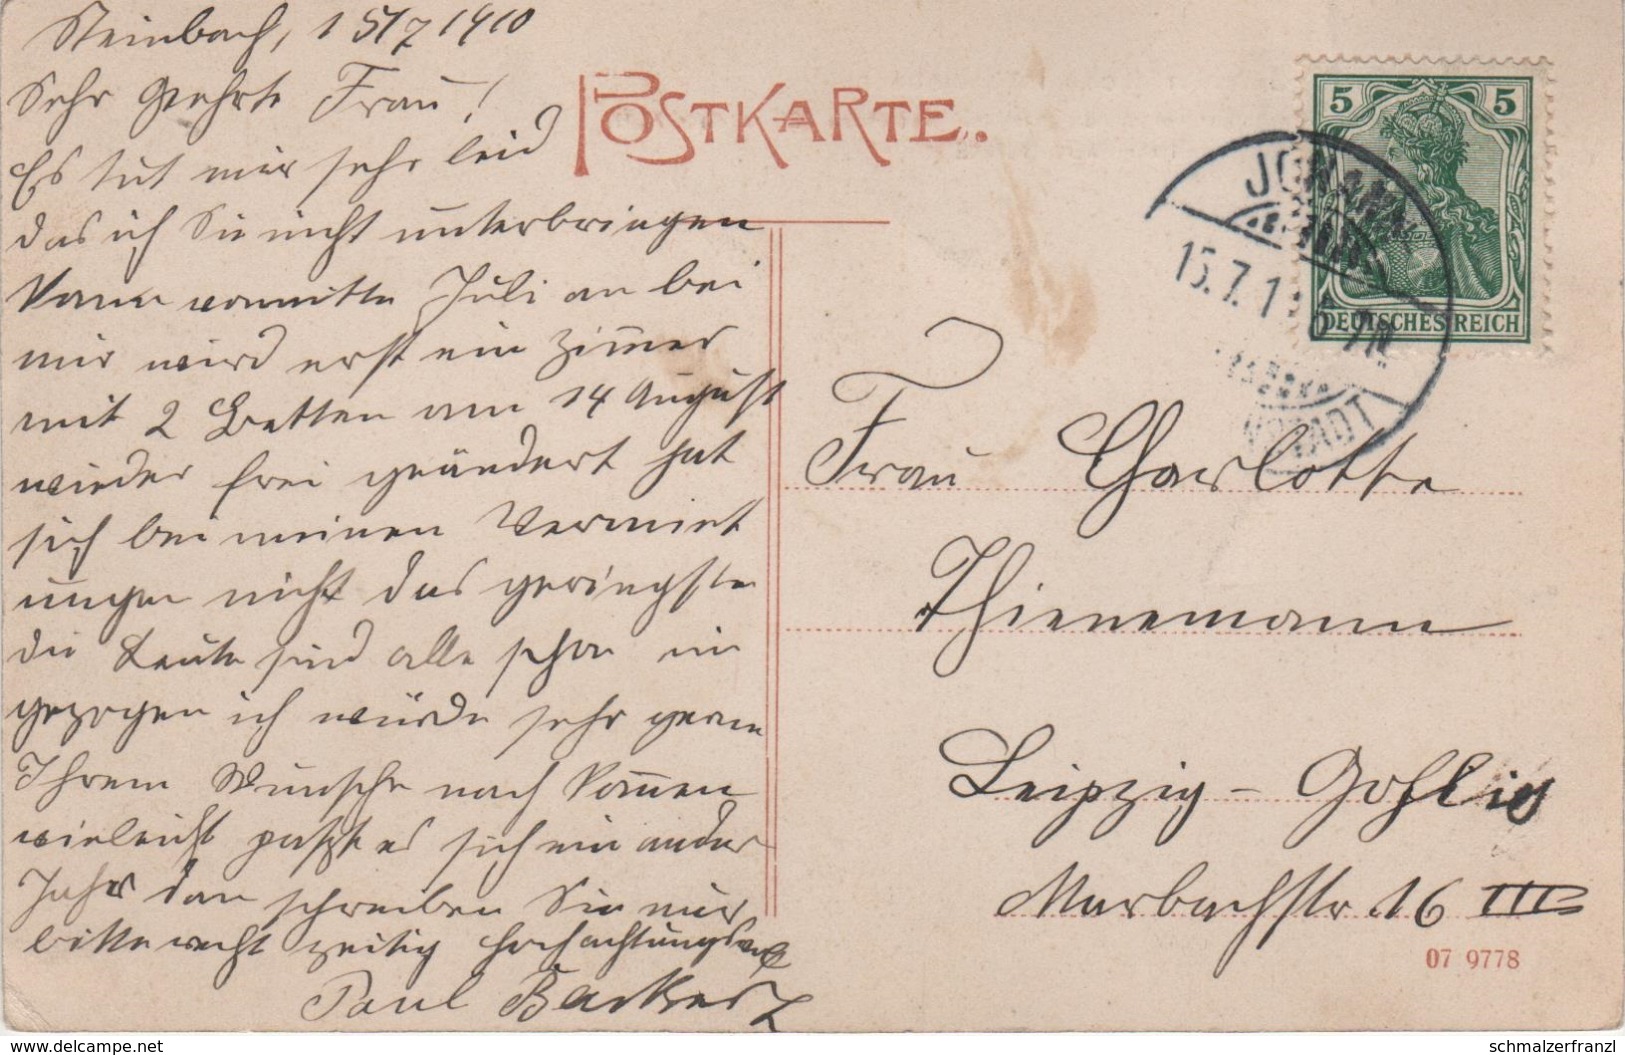 Steinbach, 15/7 1910
Sehr Geehrte Frau!
Es tut mir sehr leid
das ich Sie nicht unterbringen
kann vormitte Juli an bei
mir wird erst ein Zimmer
mit 2 Betten am 14 August
wieder frei geändert hat
sich bei meinen Vermiet
ungen nicht das geringste
die Leute sind alle schon ein
gezogen ich würde sehr gerne
Ihrem Wunsche nach kommen
vieleicht paßt es sich ein ander
Jahr dan schreiben Sie mir
bitte recht zeitig Hochachtungsvoll
Paul Backer
POSTKARTE.
5 5
DEUTSCHES REICH
JOHANN
15.7.1
STADT
Frau Charlotte
Thienemann
Leipzig - Gohlis
Marbachstr. 16 III
07 9778
delcampe.net
schmalzerfranzl